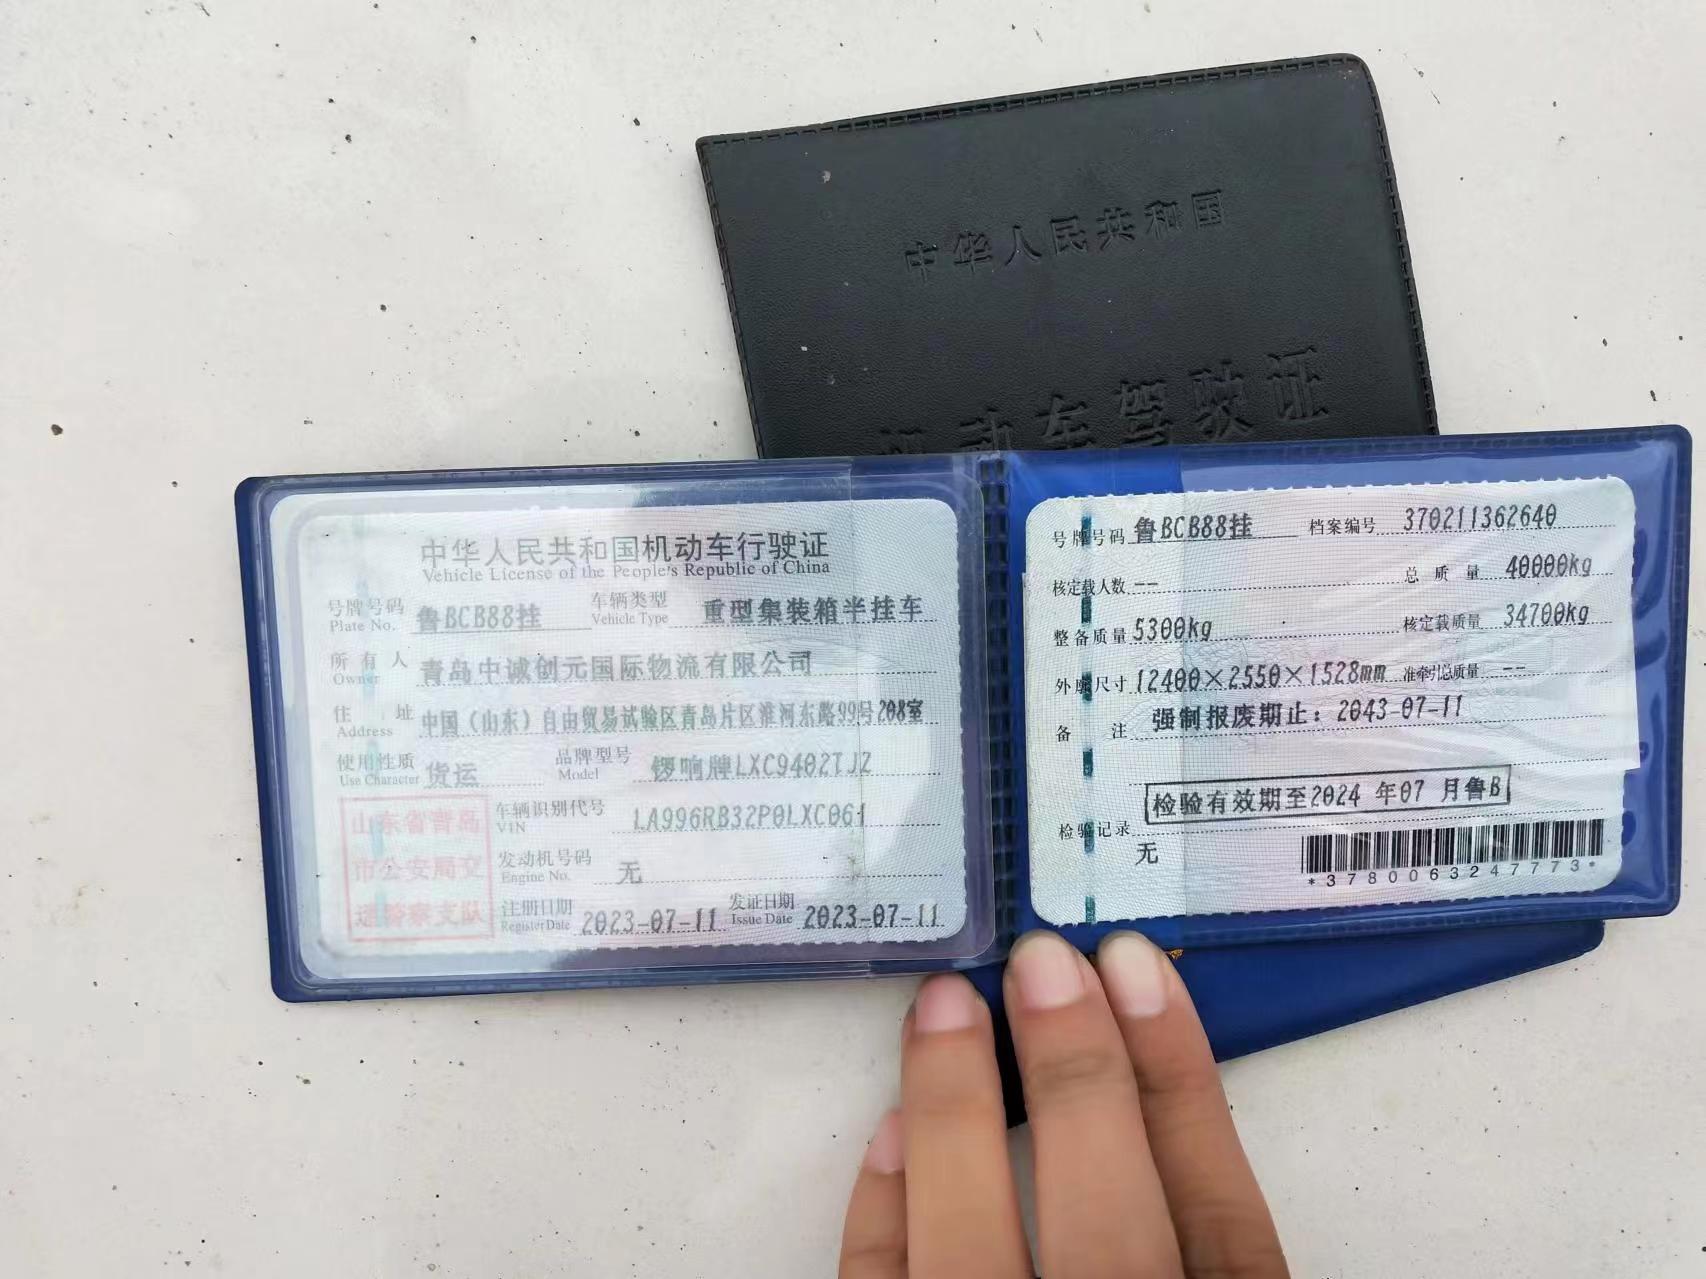 中华人民共和国
机动车驾驶证
中华人民共和国机动车行驶证
Vehicle License of the People's Republic of China
号牌号码 Plate No. 鲁BCB88挂 车辆类型 Vehicle Type 重型集装箱半挂车
所有人 Owner 青岛中诚创元国际物流有限公司
住址 Address 中国（山东）自由贸易试验区青岛片区淮河东路99号208室
使用性质 Use Character 货运 品牌型号 Model 锣响牌LXC9402TJZ
山东省青岛
市公安局交
通警察支队
车辆识别代号 VIN LA996RB32P0LXC061
发动机号码 Engine No. 无
注册日期 Register Date 2023-07-11 发证日期 Issue Date 2023-07-11
号牌号码 鲁BCB88挂 档案编号 370211362640
核定载人数 -- 总质量 40000kg
整备质量 5300kg 核定载质量 34700kg
外廓尺寸 12400×2550×1528mm 准牵引总质量 --
备注 强制报废期止：2043-07-11
检验有效期至2024 年07 月鲁B
检验记录
无
*3780063247773*